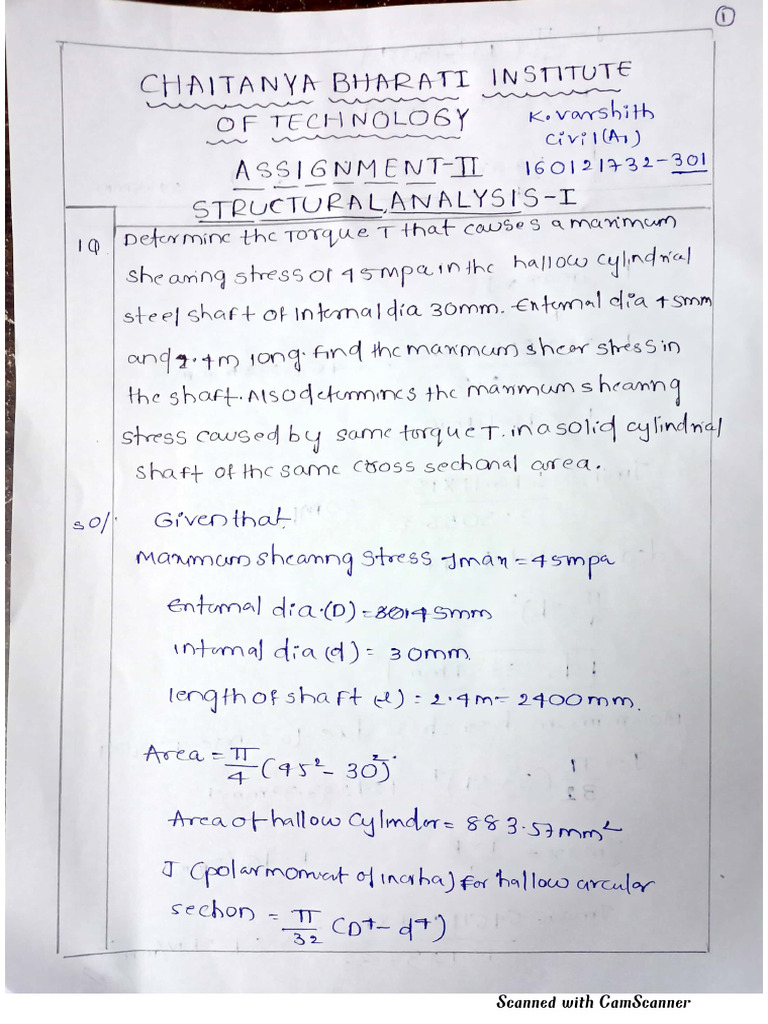 1
CHAITANYA BHARATI INSTITUTE
OF TECHNOLOGY
K. Varshith
Civil (A1)
ASSIGNMENT-II
160121732-301
STRUCTURAL ANALYSIS-I
1Q Determine the Torque T that causes a maximum
shearing stress of 45mpa in the hallow cylindrical
steel shaft of Internal dia 30mm. External dia 45mm
and 2.4m long. find the maximum shear stress in
the shaft. Also determines the maximum shearing
stress caused by same torque T. in a solid cylindrial
shaft of the same cross sectional area.
sol. Given that
Maximum shearing stress Jmax = 45mpa
External dia.(D) = 45mm
internal dia (d) = 30mm.
length of shaft (l) = 2.4m = 2400mm.
Area = π/4 (45² - 30²)
Area of hallow cylinder = 883.57mm²
J (polar moment of inertia) for hallow circular
section = π/32 (D⁴ - d⁴)
Scanned with CamScanner